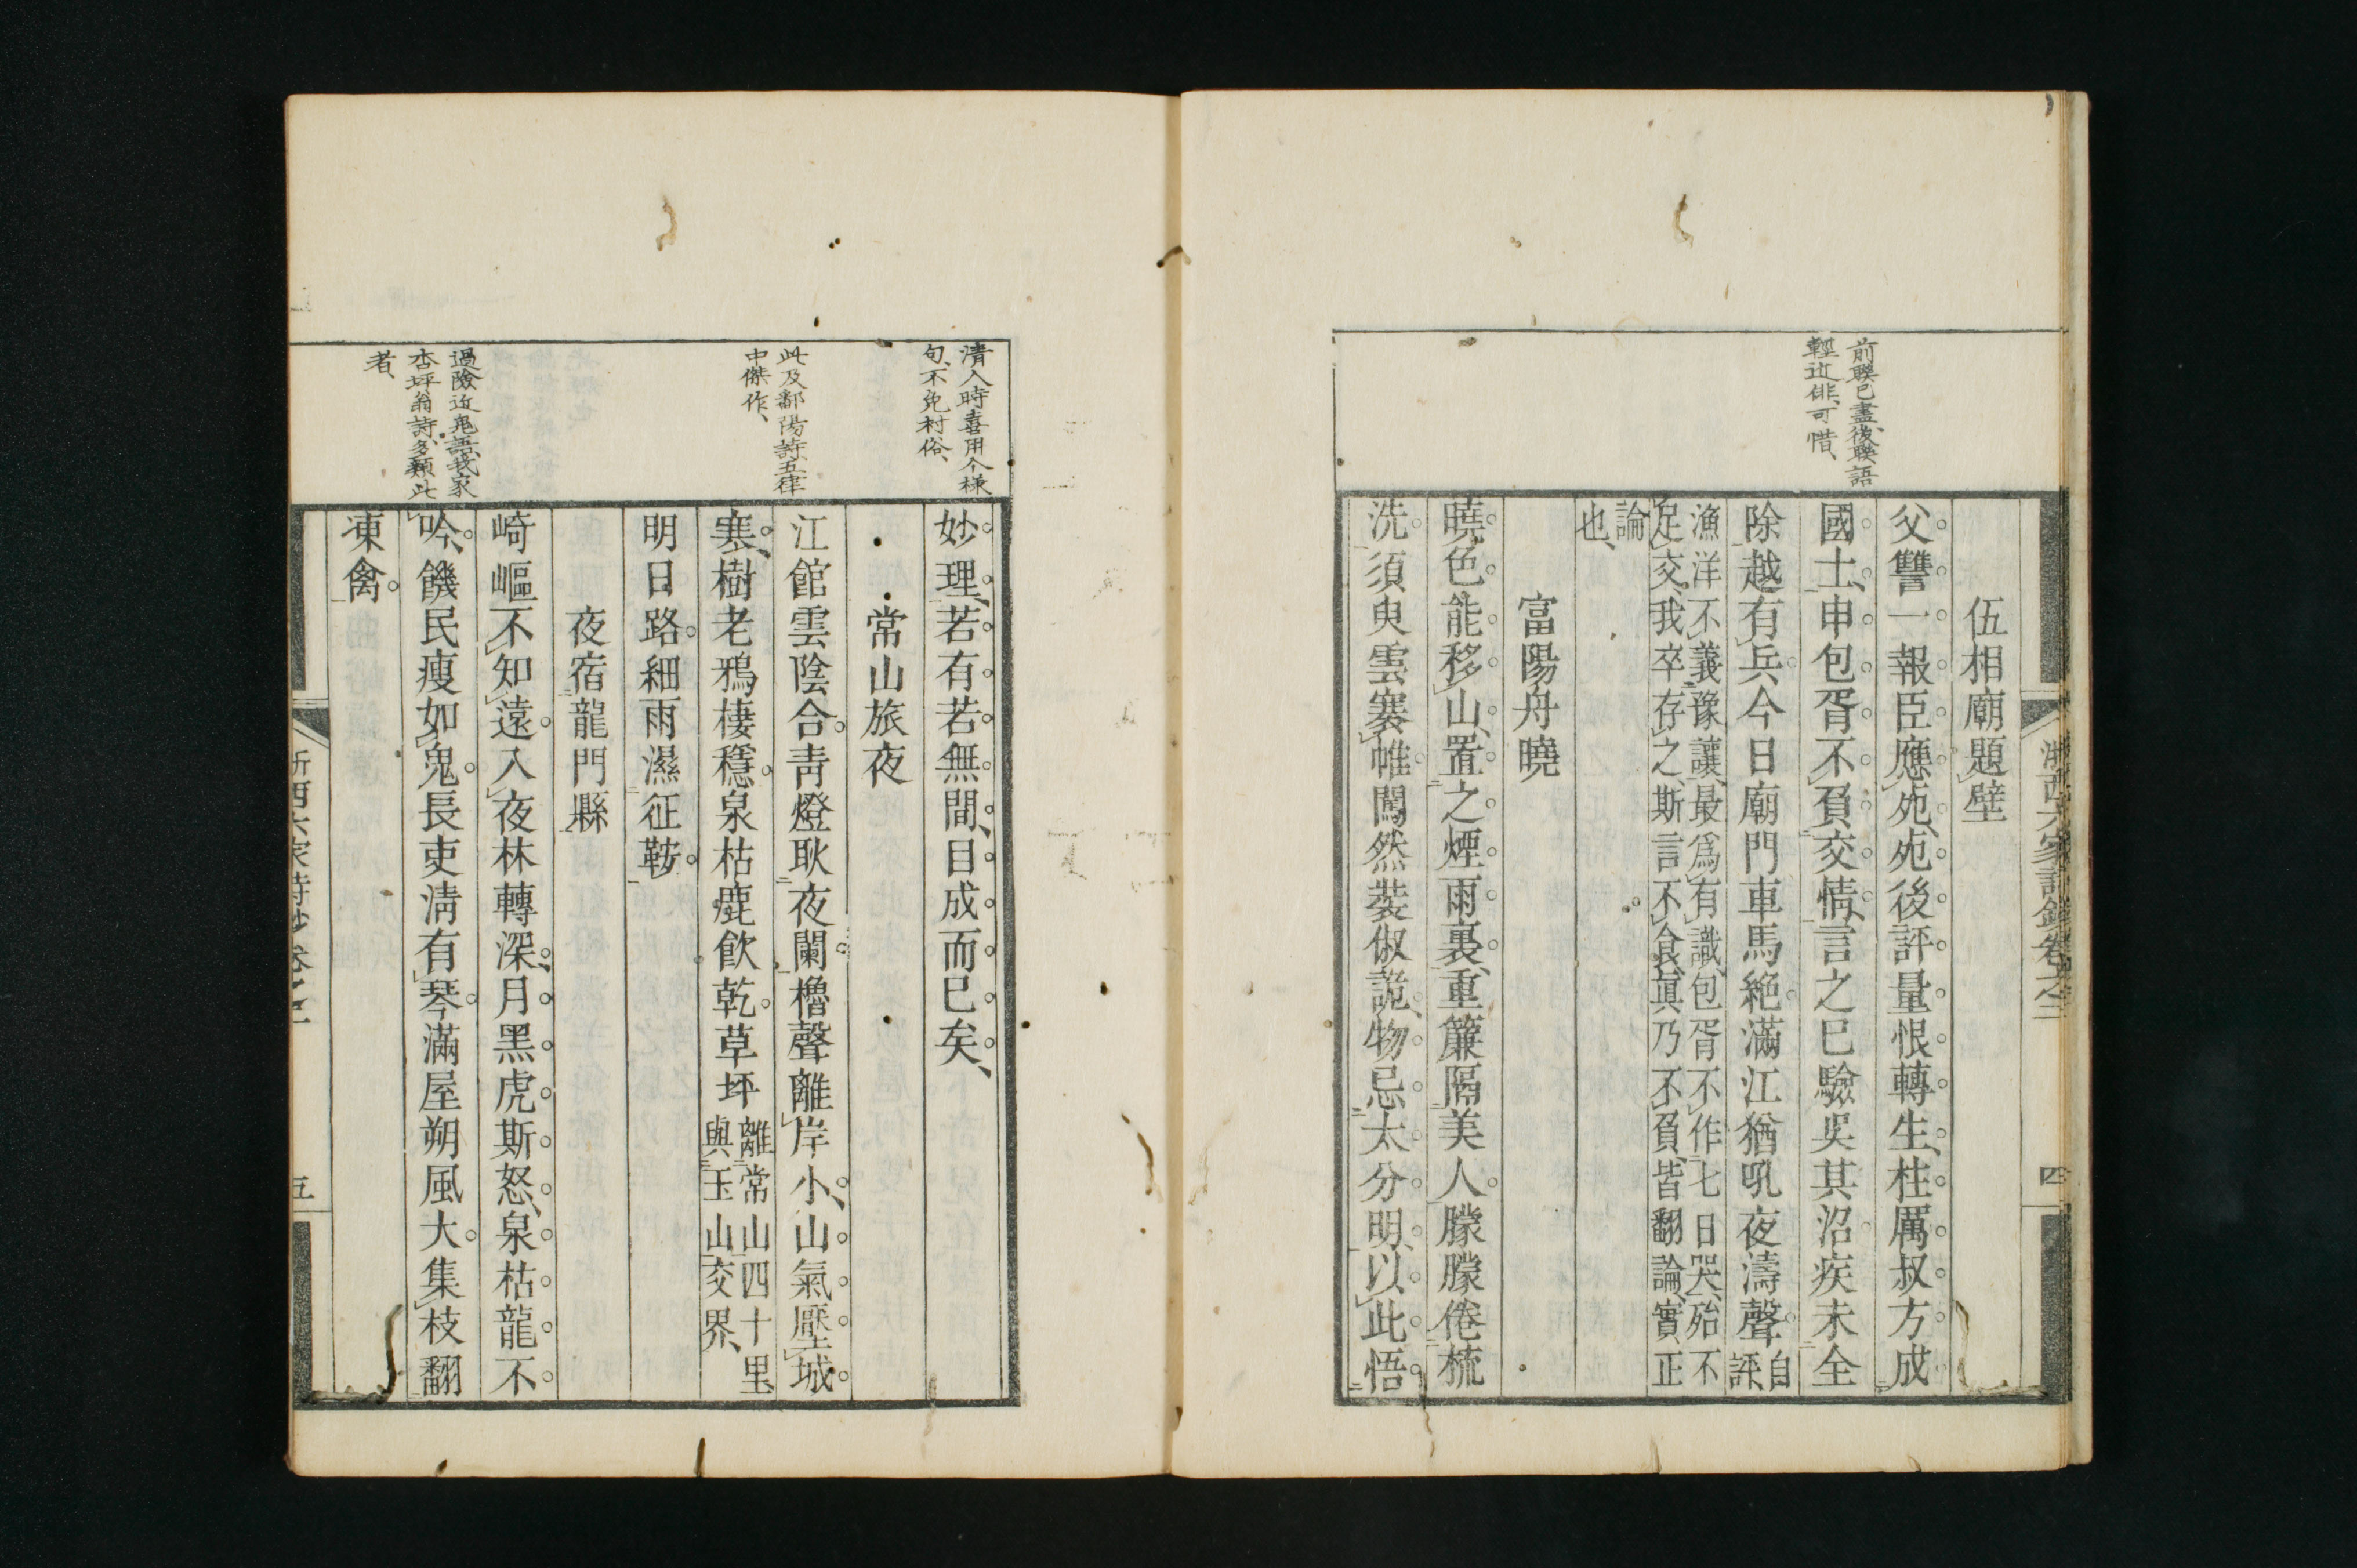 前聯已盡、後聯語
輕近俳、可惜、
浙西六家詩鈔卷之二
四
伍相廟題壁
父讐一報臣應死、死後評量恨轉生、柱厲叔方成
國士、申包胥不負交情、言之已驗吳其沼疾未全
除越有兵今日廟門車馬絶滿江猶吼夜濤聲自評、
漁洋不義豫讓、最爲有識、包胥不作七日哭、殆不
足交、我卒存之、斯言不食、眞乃不負、皆翻論、實正
論
也、
富陽舟曉
曉色能移山、置之煙雨裏、重簾隔美人朦朦倦梳
洗須臾雲褰帷闖然裝俶詭、物忌太分明、以此悟
清人時喜用个樣
句、不免村俗、
此及鄱陽詩、五律
中傑作、
過險近鬼語、我家
杏坪翁詩、多類此
者、
妙理、若有若無間、目成而已矣、
常山旅夜
江館雲陰合靑燈耿夜闌櫓聲離岸小、山氣壓城
寒、樹老鴉棲穩泉枯鹿飮乾草坪離常山四十里、
與玉山交界、
明日路細雨濕征鞍
夜宿龍門縣
崎嶇不知遠入夜林轉深、月黑虎斯怒、泉枯龍不
吟、饑民瘦如鬼長吏淸有琴滿屋朔風大集枝翻
凍禽
浙西六家詩鈔卷之二
五